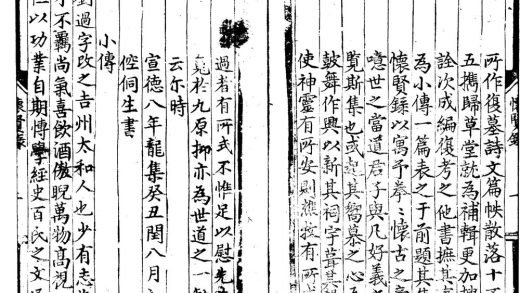 所作復墓詩文篇帙散落十
五擕歸草堂就為補輯更加
詮次成編復考之他書摭其
為小傳一篇表之于前題其
懷賢錄以寓予拳〻懷古之
噫世之當道君子與凡好義
覧斯集也或起其嚮慕之心
鼓舞作興以新其祠宇葺其
使神靈有所安則樵牧有所
過者有所式不惟足以慰先
於九原抑亦為世道之一
云尔時
宣德八年龍集癸丑閏八月
倥侗生書
小傳
過字改之吉州太和人也少有志
不羈尚氣喜飲酒傲睨萬物高視
以功業自期愽學經史百氏之文